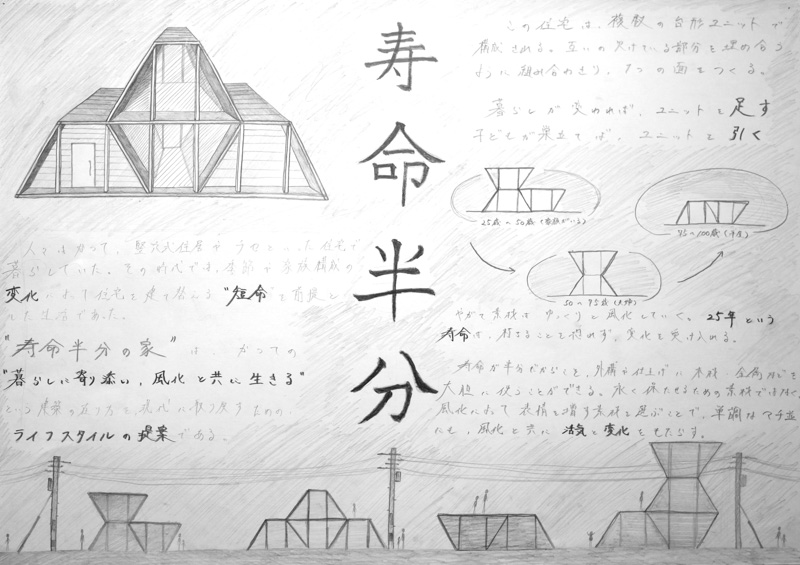 寿命半分
この住宅は、複数の台形ユニットで
構成される。互いの欠けている部分を埋め合る
ように組み合わさり、1つの面をつくる。
暮らしが変われば、ユニットを足す
子どもが巣立てば、ユニットを引く
25歳〜50歳(家族がいる)
50〜75歳(夫婦)
75〜100歳(平屋)
人々はかつて、竪穴式住居や
暮らしていた。その時代では、季節や家族構成の
変化に 住宅を建て替える "短命"を前提と
した生活であった。
"寿命半分の家" は かつての
"暮らしに寄り添い、風化と共に生きる"
という 現代に取り戻すための
ライフスタイルの提案である。
やがて素材は ゆっくりと風化していく。25年という
寿命は、朽ちることを恐れず、変化を受け入れる。
寿命が半分だからこそ、外構や仕上げに木材・金属などを
大胆に使うことができる。永く保たせるための素材ではなく、
風化によって表情を増す素材を選ぶことで、単調な街並
にも、風化と共に 活気と変化をもたらす。